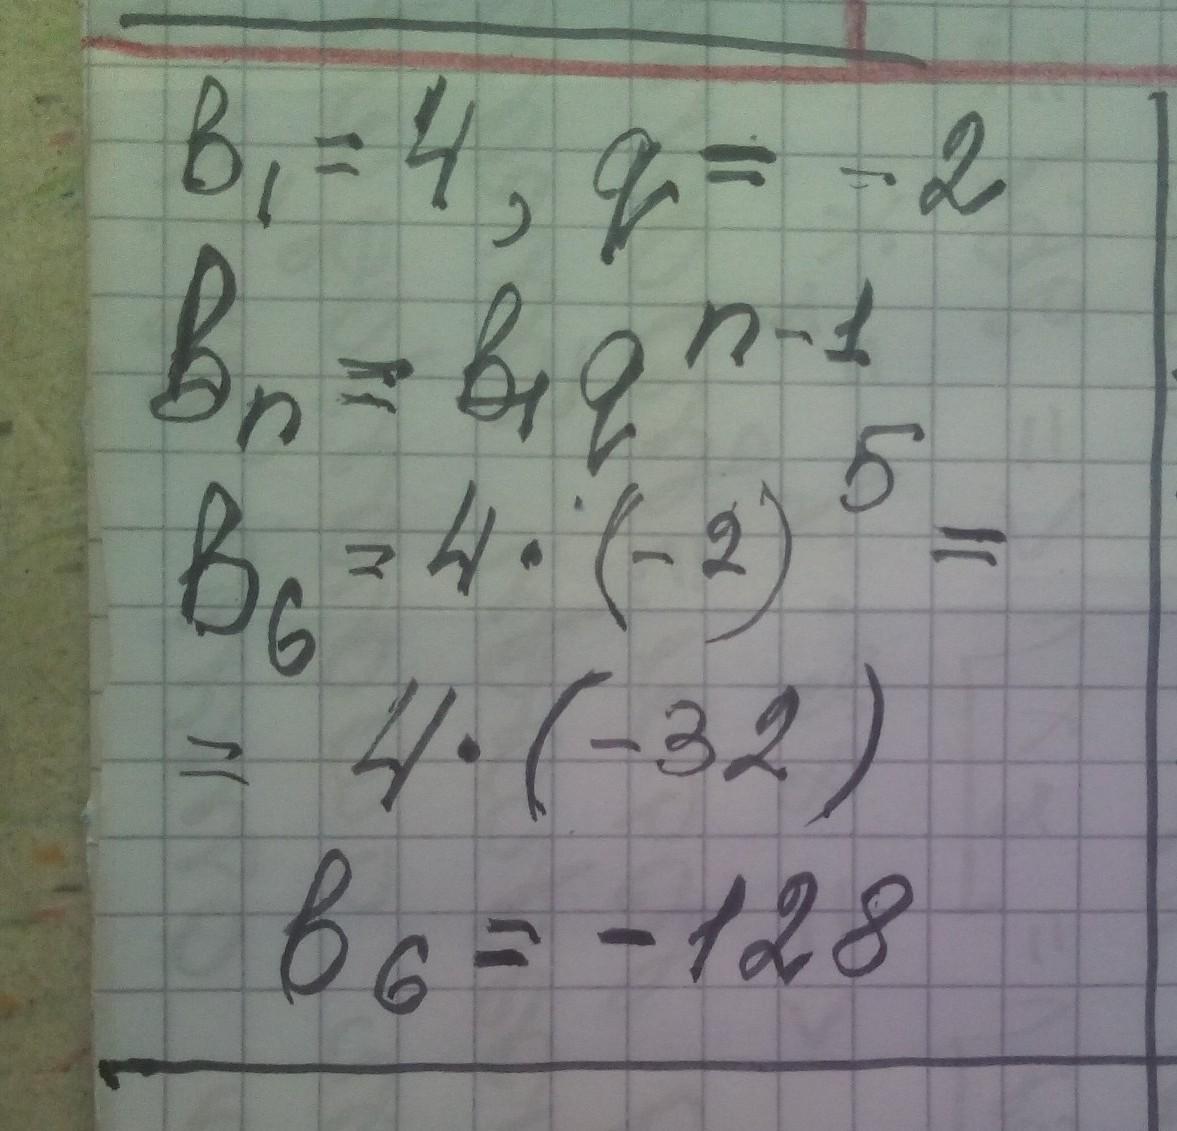 b₁ = 4, q = -2
bₙ = b₁qⁿ⁻¹
b₆ = 4 · (-2)⁵ =
= 4 · (-32)
b₆ = -128